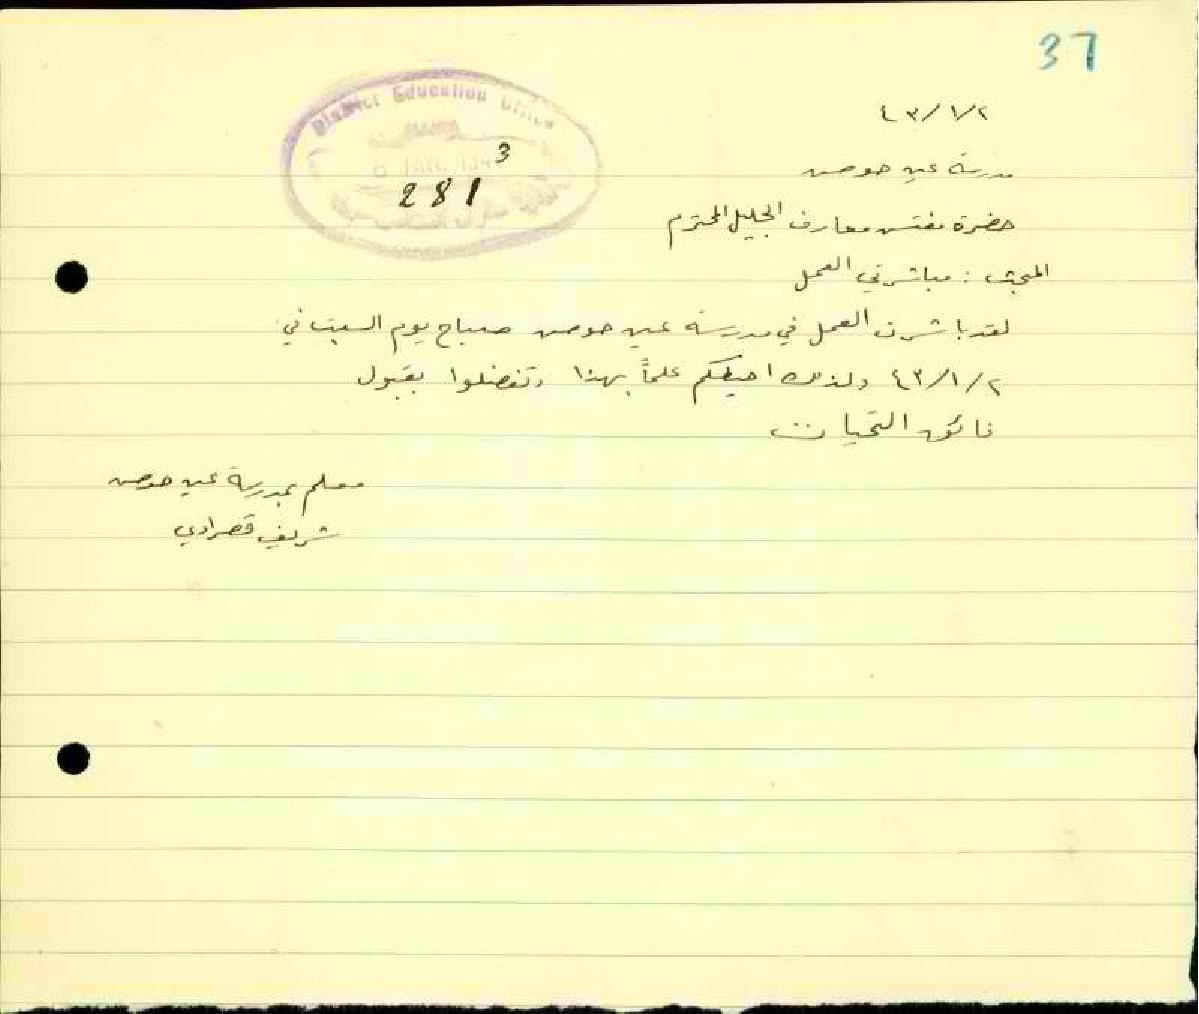 37
District Education Office
3
281
٤٣/١/٢
مدرسة عين حوض
حضرة مفتش معارف الجليل المحترم
المبحث : مباشرتي العمل
لقد باشرت العمل في مدرسة عين حوض صباح يوم السبت في
٤٣/١/٢ ولذلك احيطكم علماً بهذا وتفضلوا بقبول
فائق التحيات
معلم بمدرسة عين حوض
شريف